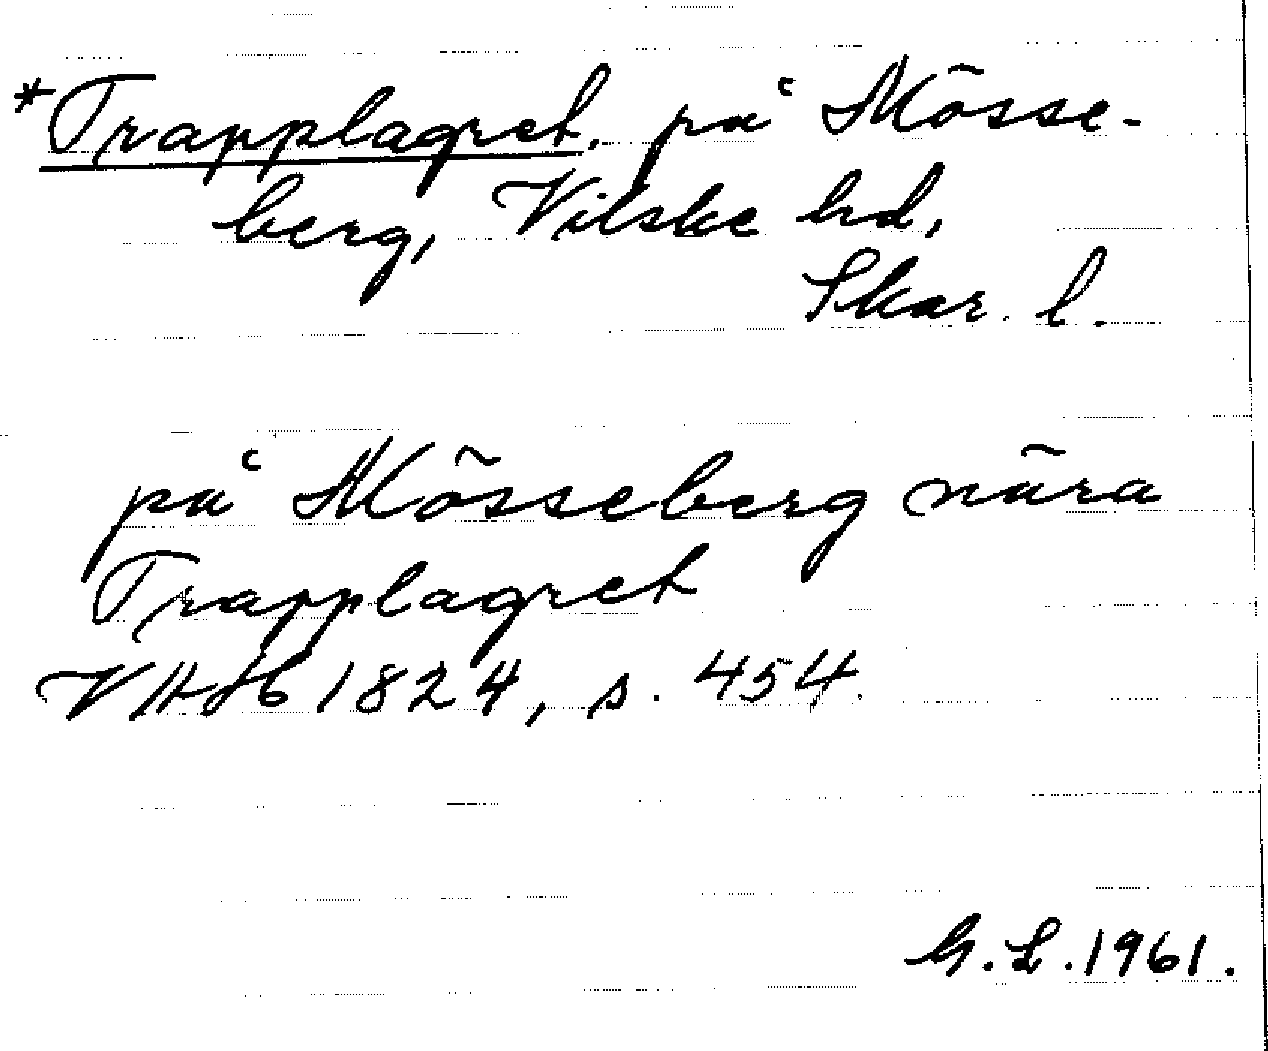 *Trapplagret. på Mösse-
berg, Vilske hd,
Skar. l.
på Mösseberg nära
Trapplagret
VAH 1824, s. 454.
G.L.1961.